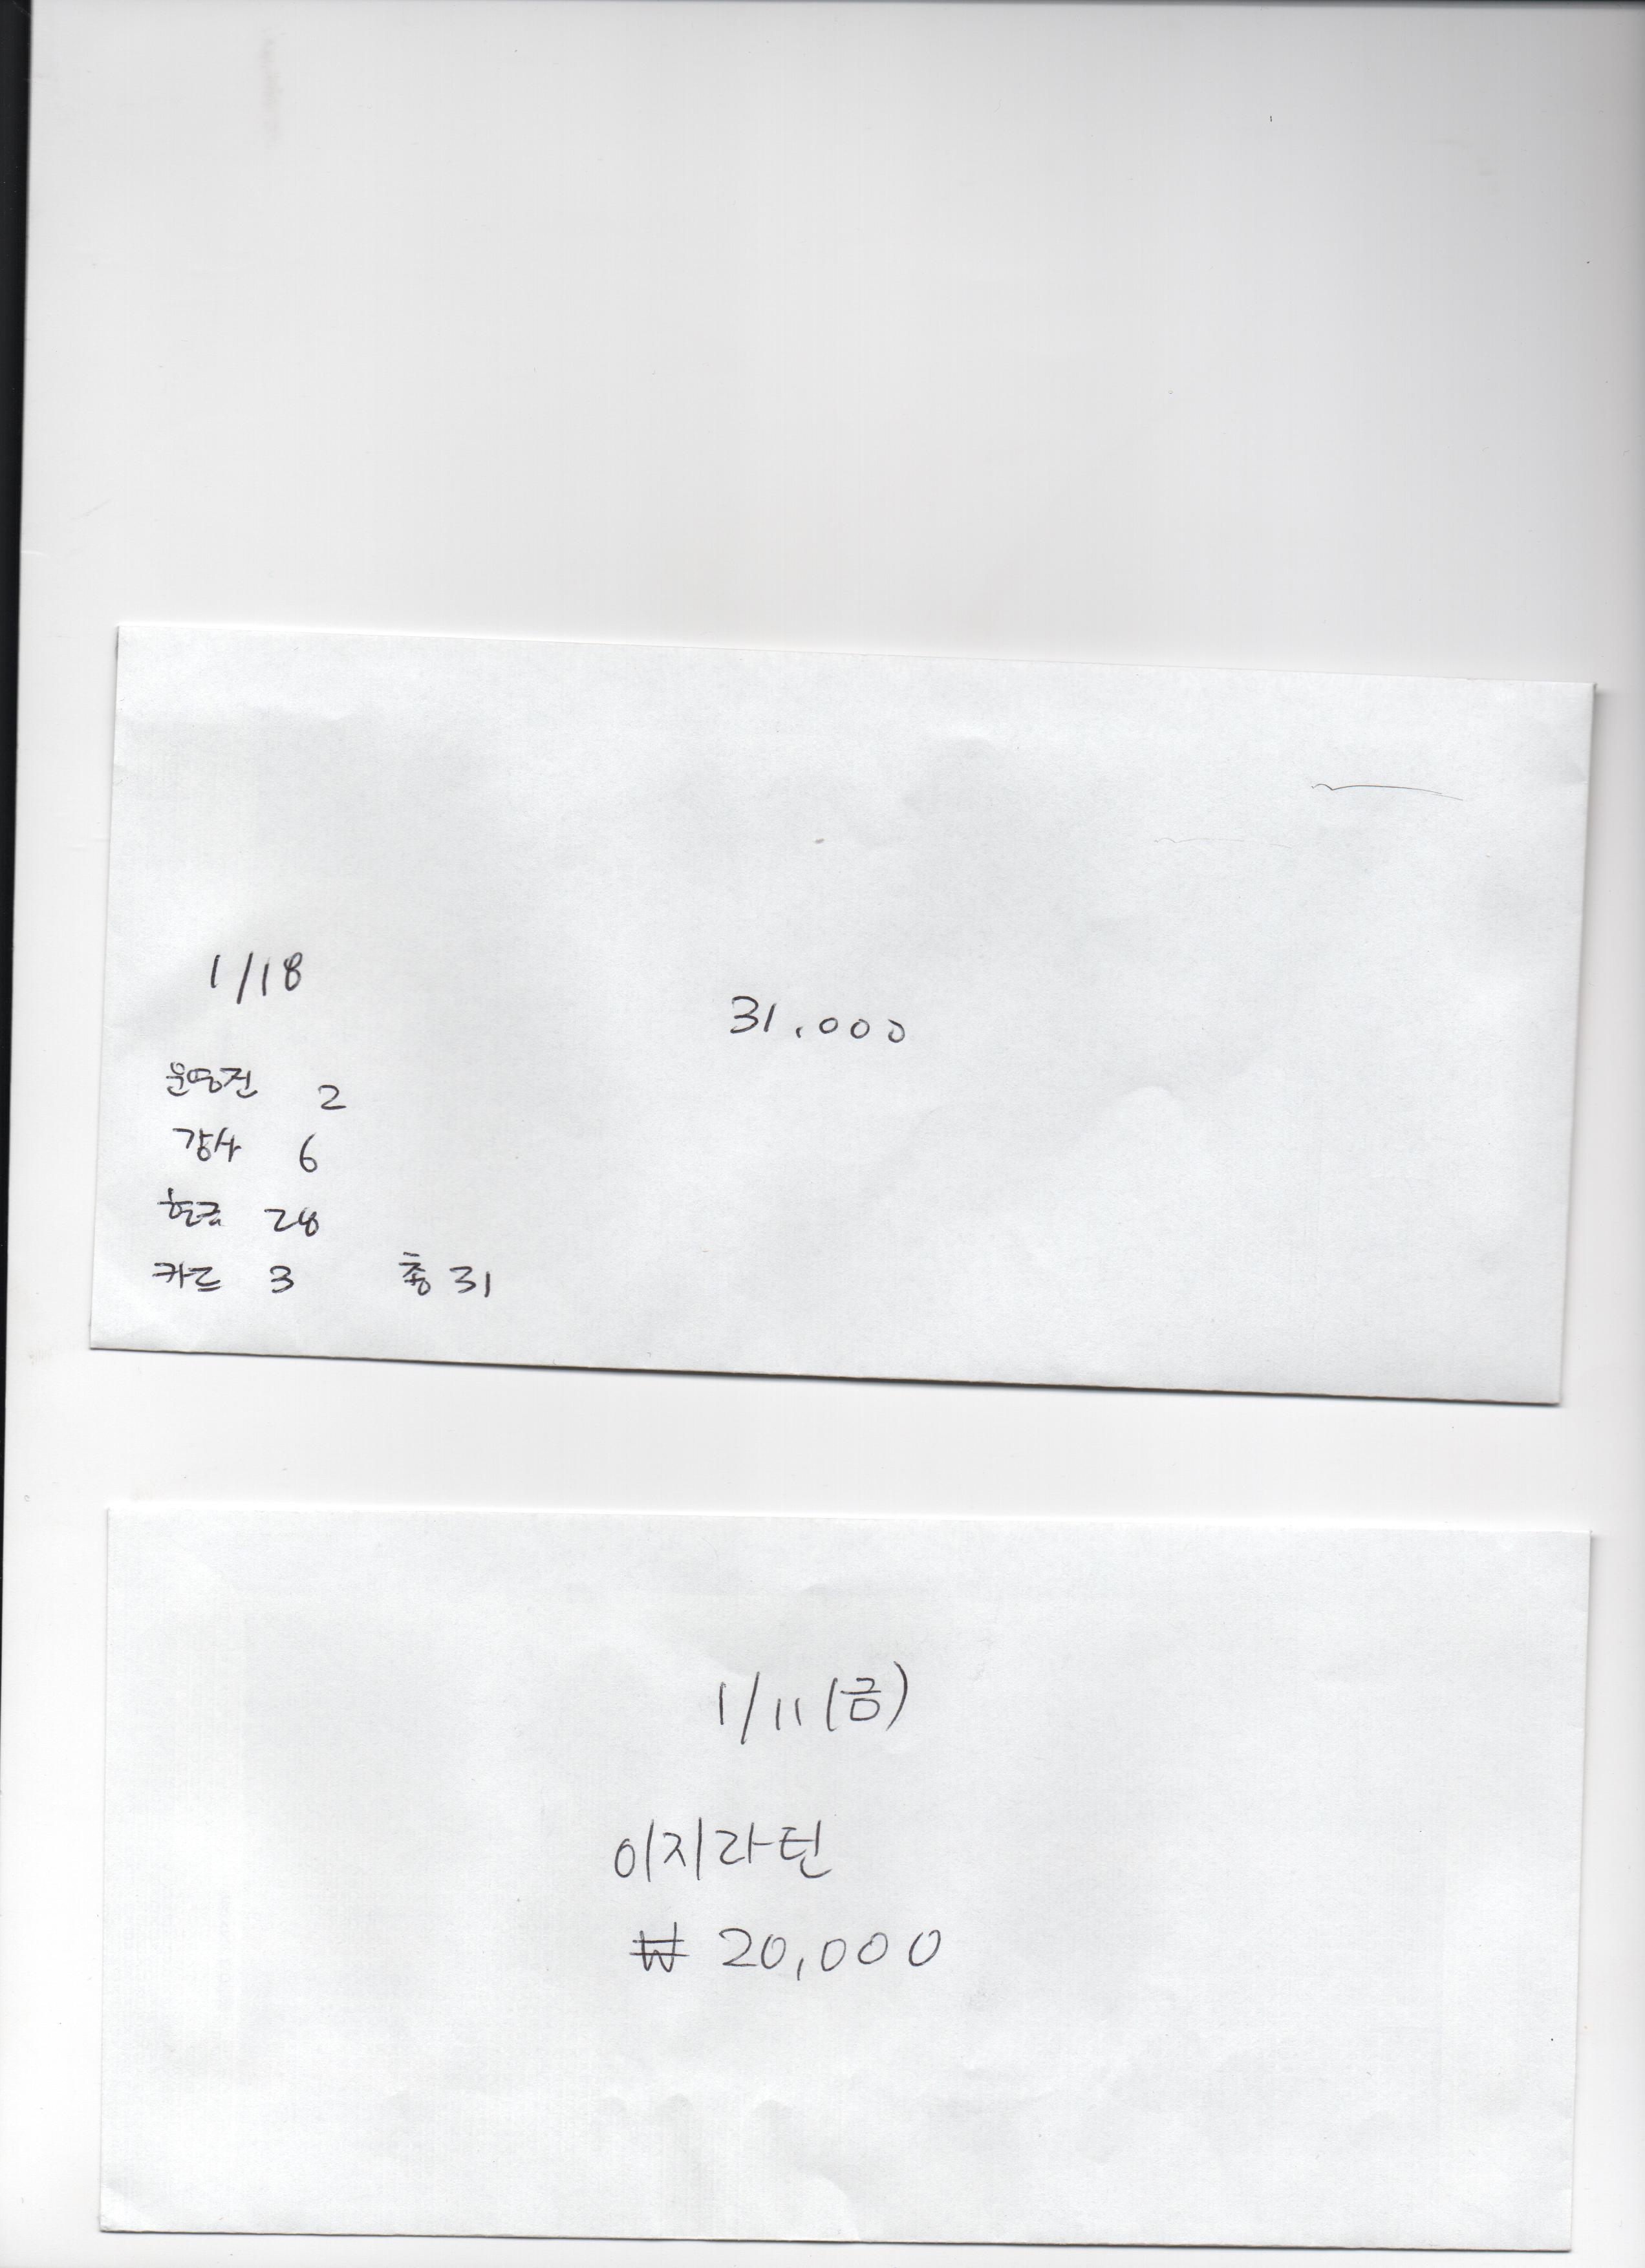 1/18
31.000
운영진 2
강사 6
현금 28
카드 3 총 31
1/11(금)
이지라틴
₩ 20,000